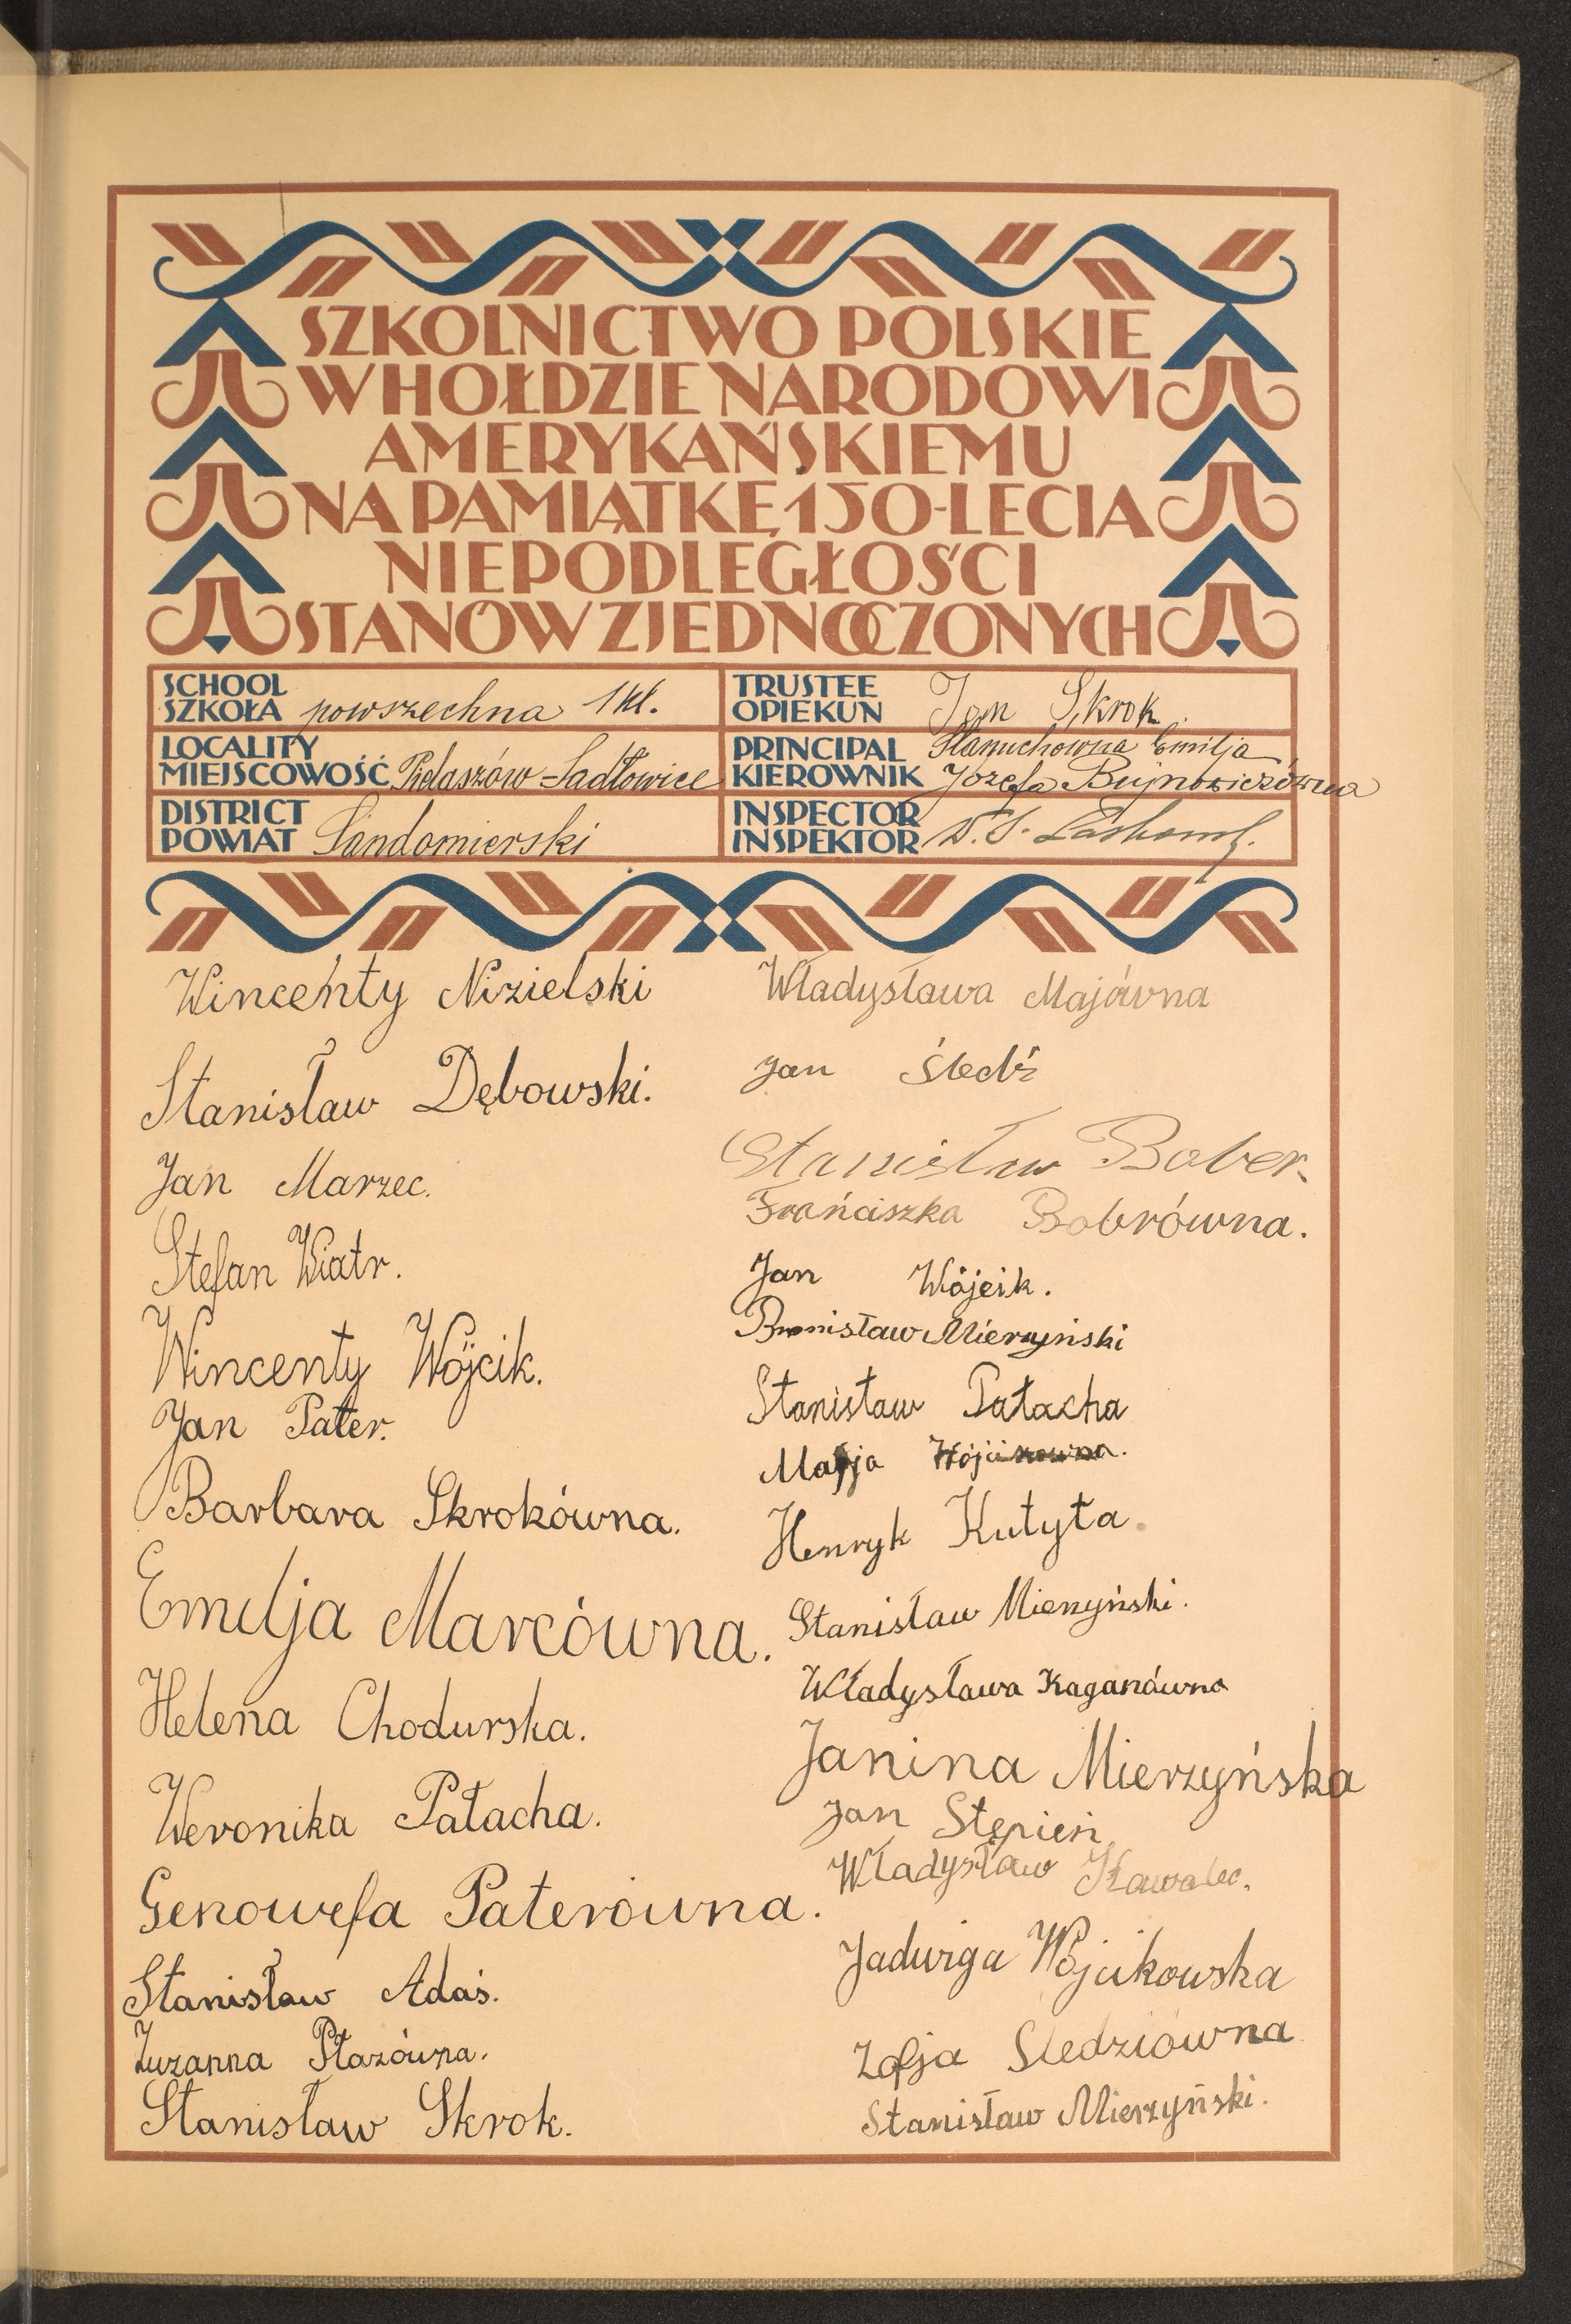 SZKOLNICTWO POLSKIE
W HOŁDZIE NARODOWI
AMERYKAŃSKIEMU
NA PAMIĄTKĘ 150-LECIA
NIEPODLEGŁOŚCI
STANÓW ZJEDNOCZONYCH
SCHOOL
SZKOŁA powszechna 1 kl.
TRUSTEE
OPIEKUN Jan Skrok.
LOCALITY
MIEJSCOWOŚĆ Pielaszów-Sadłowice
PRINCIPAL Stanuchówna Emilja
KIEROWNIK Józefa Bujnowiczówna
DISTRICT
POWIAT Sandomierski
INSPECTOR
INSPEKTOR
Wincenty Nizielski
Stanisław Dębowski.
Jan Marzec.
Stefan Wiatr.
Wincenty Wójcik.
Jan Pater.
Barbara Skrokówna.
Emilja Marcówna.
Helena Chodurska.
Weronika Pałacha.
Genowefa Paterówna.
Stanisław Adaś.
Zuzanna Płazówna.
Stanisław Skrok.
Władysława Majówna
Jan Śledź
Stanisław Bober.
Frańciszka Bobrówna.
Jan Wójcik.
Bronisław Mierzyński
Stanisław Pałacha
Marja Wójcikowna.
Henryk Kutyta
Stanisław Mierzyński.
Władysława Kaganówna
Janina Mierzyńska
Jan Stępień
Władysław Kawalec.
Jadwiga Wójcikowska
Zofja Śledziówna
Stanisław Mierzyński.